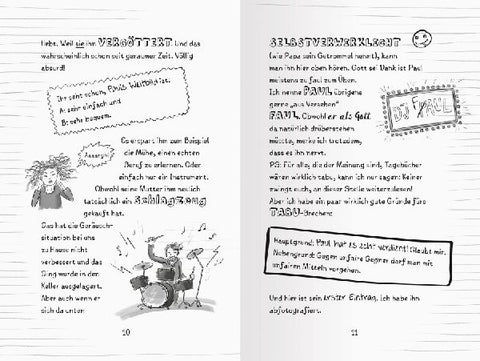 liebt. Weil sie ihn VERGÖTTERT. Und das
wahrscheinlich schon seit geraumer Zeit. Völlig
absurd!
Ihr seht schon, Pauls Weltbild ist:
A: sehr einfach und
B: sehr bequem.
Es erspart ihm zum Beispiel
die Mühe, einen echten
Beruf zu erlernen. Oder
einfach nur ein Instrument.
Aaaargh!
Obwohl seine Mutter ihm neulich
tatsächlich ein SCHLAGZEUG
gekauft hat.
Das hat die Geräusch-
situation bei uns
zu Hause nicht
verbessert und das
Ding wurde in den
Keller ausgelagert.
Aber auch wenn er
sich da unten
10
SELBSTVERWERKLECHT
(wie Papa sein Getrommel nennt), kann
man ihn hier oben hören. Gott sei Dank ist Paul
meistens zu faul zum Üben.
Ich nenne PAUL übrigens
gerne „aus Versehen"
FAUL. Obwohl er als Gott
da natürlich drüberstehen
müsste, merke ich trotzdem,
dass es ihn nervt.
DJ PAUL
PS: Für alle, die der Meinung sind, Tagebücher
wären wirklich tabu, kann ich nur sagen: Keiner
zwingt euch, an dieser Stelle weiterzulesen!
Aber ich habe ein paar wirklich gute Gründe fürs
TABU-Brechen:
Hauptgrund: Paul hat es echt verdient! Glaubt mir.
Nebengrund: Gegen unfaire Gegner darf man mit
unfairen Mitteln vorgehen.
Und hier ist sein unser Eintrag, ich habe ihn
abfotografiert.
11